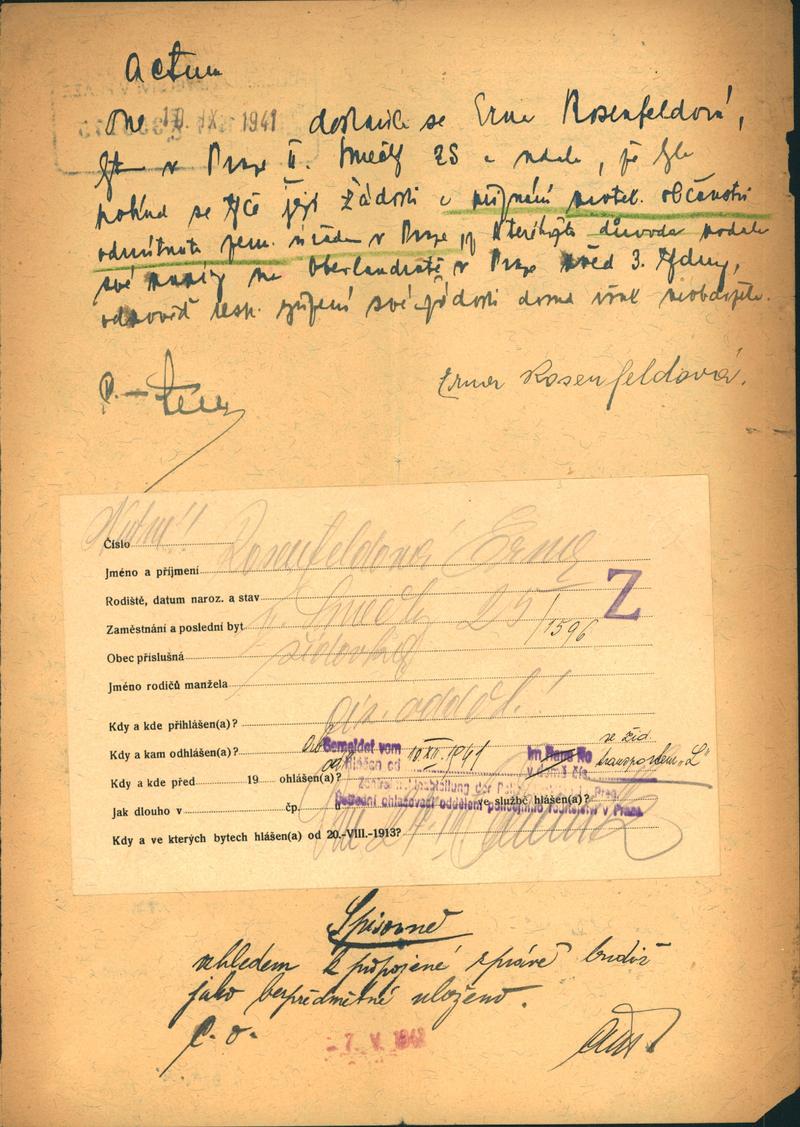 Actum
dne 10. IX. 1941 dostavila se Erna Rosenfeldová,
v Praze II. Smečky 25 a udala, že
pokud se týče její žádosti o přiznání protekt. občanství
odmítnuta zem. úřadem v Praze, důvodu podala
své na Oberlandratě v Praze před 3. týdny,
odpověď resp. vyřízení své žádosti doma však neobdržela.
Erna Rosenfeldová.
Nutné!!
Číslo
Jméno a příjmení Rosenfeldová Erna
Rodiště, datum naroz. a stav
Zaměstnání a poslední byt II. Smečky 25/1596
Z
Obec příslušná židovka
Jméno rodičů manžela
Kdy a kde přihlášen(a)?
Kdy a kam odhlášen(a)?
Gemeldet vom 10. XII. 1941 im Hause No ve žid.
Hlášen od v domě čís. transportem „L"
Kdy a kde před 19 ohlášen(a)?
Zentralmeldeabteilung der Prag.
Jak dlouho v čp. ve službě hlášen(a)?
Ústřední ohlašovací oddělení policejního ředitelství v Praze
Kdy a ve kterých bytech hlášen(a) od 20.-VIII.-1913?
Spisovně
vzhledem k připojené zprávě budiž
jako bezpředmětné uloženo.
- 7. V. 1942